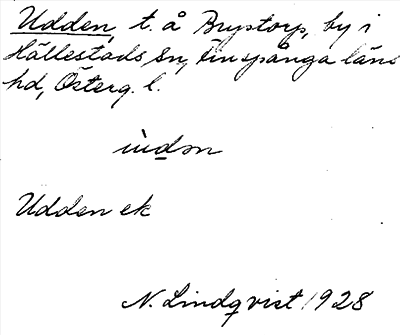 Udden, t. å Brystorp, by i
Hällestads sn, Finspånga läns
hd, Österg. l.
ùdən
Udden ek
N. Lindqvist 1928